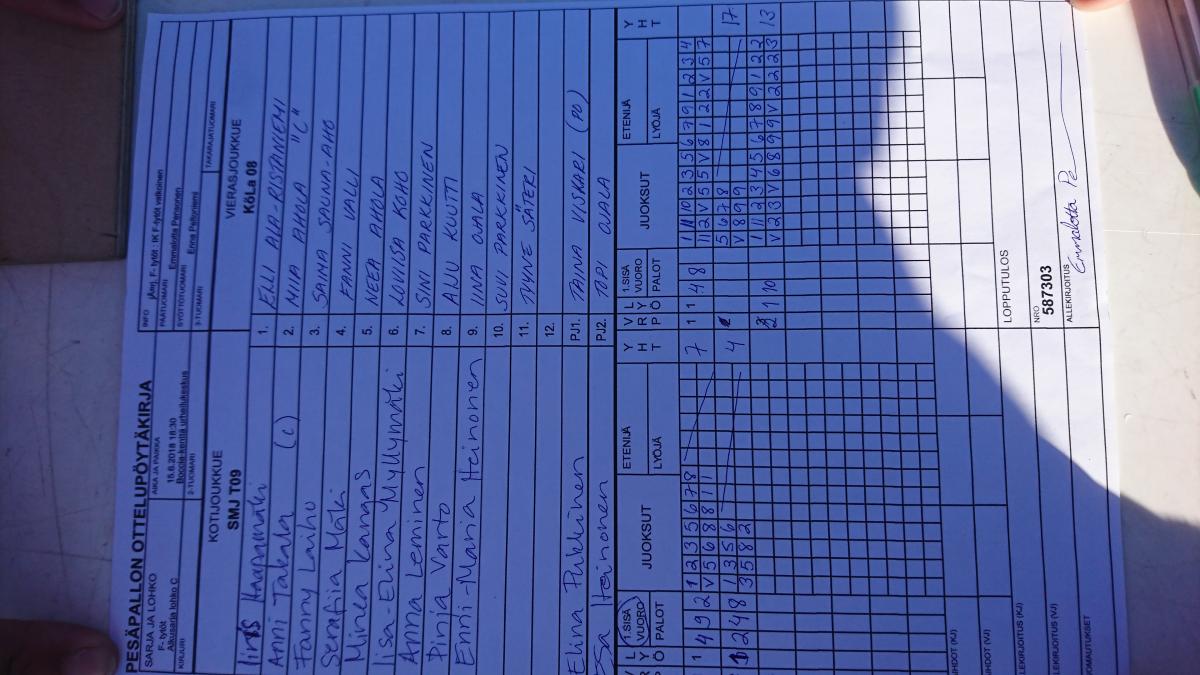 PESÄPALLON OTTELUPÖYTÄKIRJA
SARJA JA LOHKO
F- tytöt
Alkusarja lohko C
AIKA JA PAIKKA
15.6.2018 18:30
Boccia-kenttä urheilukeskus
INFO
IK F-tytöt valkoinen
PÄÄTUOMARI
Emmalotta Personen
KIRJURI
2-TUOMARI
SYÖTTÖTUOMARI
Enna Peltoniemi
3-TUOMARI
TAKARAJATUOMARI
KOTIJOUKKUE
SMJ T09
VIERASJOUKKUE
KöLa 08
Iiris Haapamäki 1. ELLI ALA-RISTANIEMI
Anni Takala (c) 2. MIA AHOLA "C"
Fanny Laiho 3. SAINA SAUNA-AHO
Serafiia Mäki 4. FANNI VALLI
Minea Kangas 5. NEEA AHOLA
Iisa-Elina Myllymäki 6. LOVIISA KOHO
Anna Leminen 7. SINI PARKKINEN
Pinja Varto 8. AIJU KUUTTI
Enni-Maria Heinonen 9. IINA OJALA
10. SUVI PARKKINEN
11. TUUNE SÄTERI
12.
Elina Pukkinen PJ1. TAINA VISKARI (PO)
Esa Heinonen PJ2. TOPI OJALA
V L 1.SISÄ JUOKSUT ETENIJÄ Y V L 1.SISÄ JUOKSUT ETENIJÄ Y
R Y VUORO H R Y VUORO H
P Ö PALOT LYÖJÄ T P Ö PALOT LYÖJÄ T
1 4 9 2 1 2 3 5 6 7 8 7 1 1 4 8 1 11 10 2 3 5 6 7 9 1 2 3 4
V 5 6 8 8 1 1 11 2 V 5 5 V 8 1 2 2 V 5 7
2 4 8 1 3 5 6 4 5 6 7 8 17
3 5 8 2 V 8 9 9
2 1 10 1 11 2 3 4 5 6 7 8 9 1 2 2 13
V 2 3 V 6 8 9 9 V 2 2 2 3
LOPPUTULOS
NRO
587303
ALLEKIRJOITUS (KJ)
ALLEKIRJOITUS (VJ)
ALLEKIRJOITUS
Emmalotta Pe